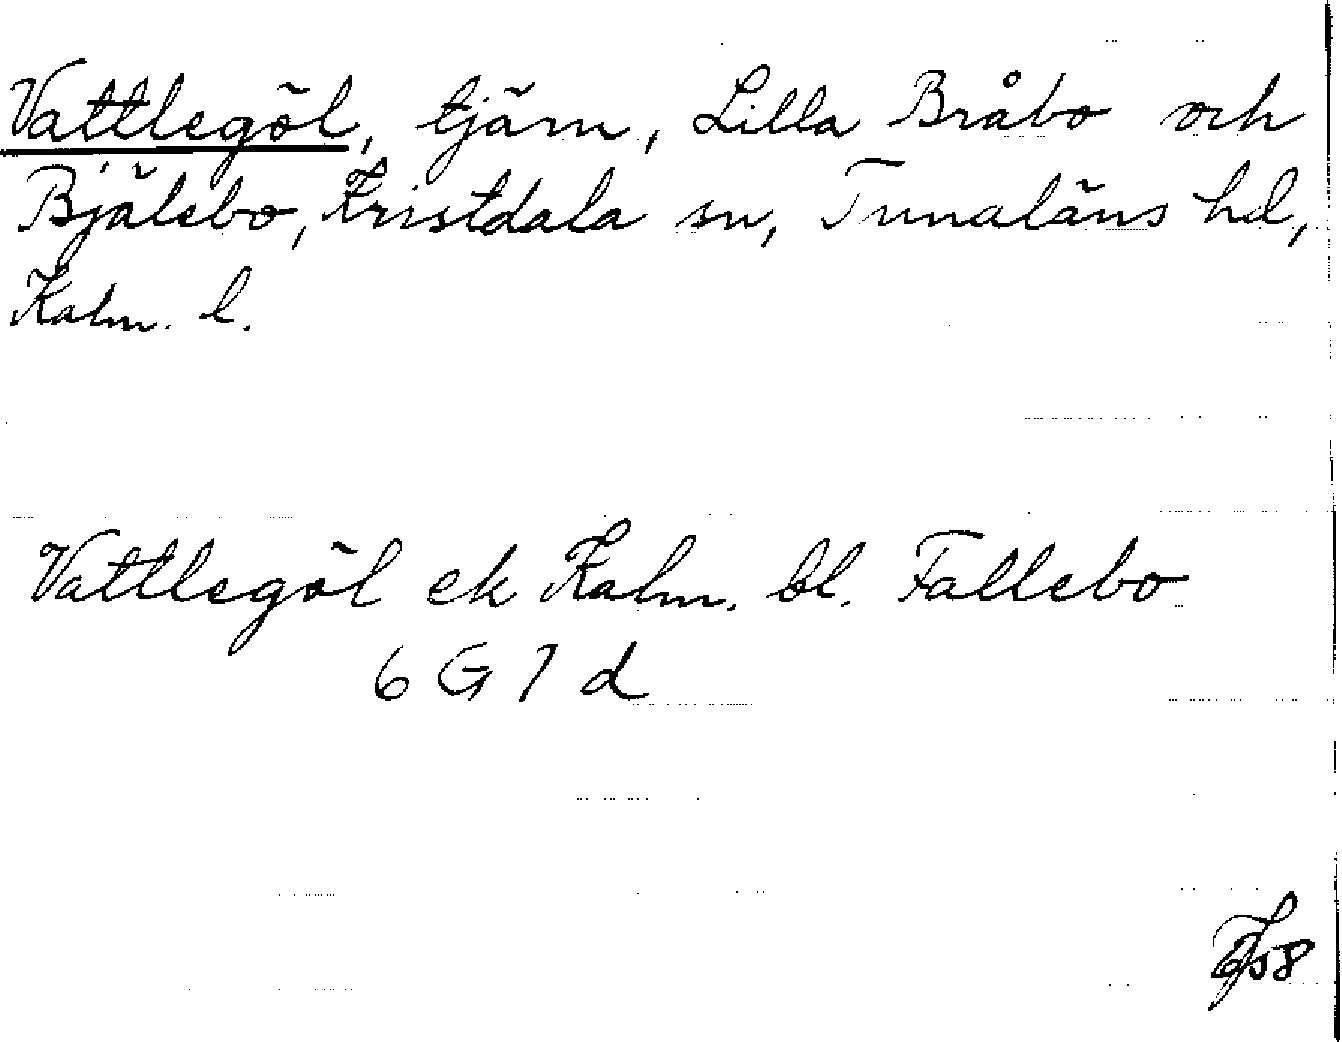 Vattlegöl, tjärn, Lilla Bråbo och
Bjälebo, Kristdala sn, Tunaläns hd,
Kalm. l.
Vattlegöl ek Kalm. bl. Fallebo
6 G 7 d